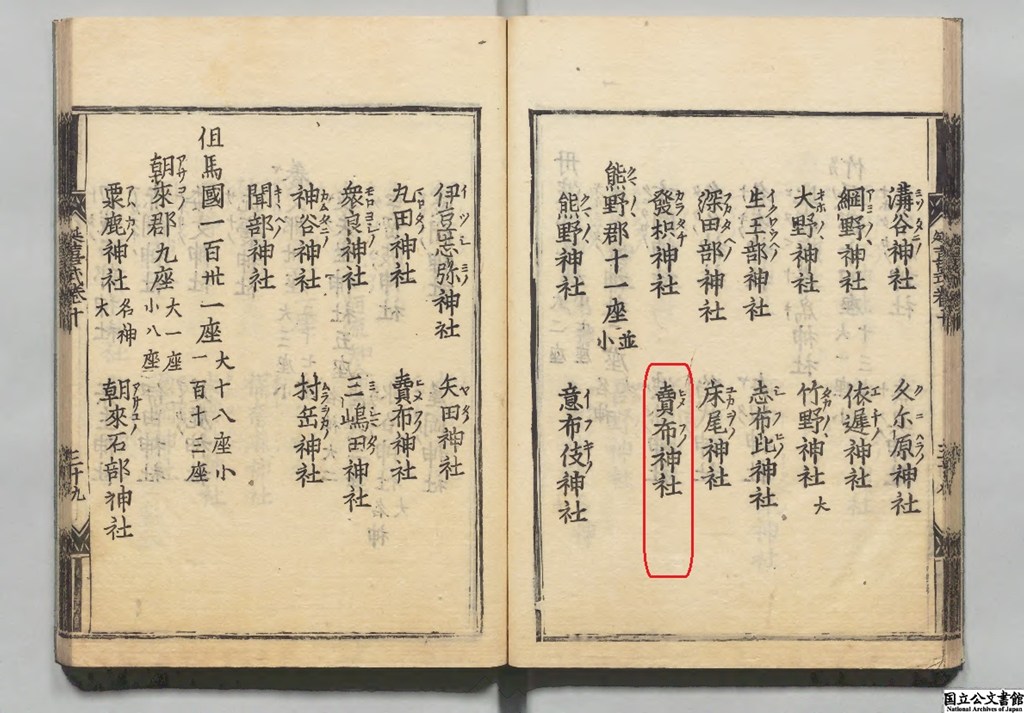 溝谷神社 久尓原神社
網野神社 依遲神社
大野神社 竹野神社 大
生王部神社 志布比神社
深田部神社 床尾神社
發枳神社 賣布神社
熊野郡十一座 並小
熊野神社 意布伎神社
伊豆志弥神社 矢田神社
九田神社 賣布神社
衆良神社 三嶋田神社
神谷神社 村岳神社
聞部神社
但馬國一百卅一座 大十八座 小一百十三座
朝來郡九座 大一座 小八座
粟鹿神社 名神大 朝來石部神社
延喜式卷十
三十九
国立公文書館
National Archives of Japan